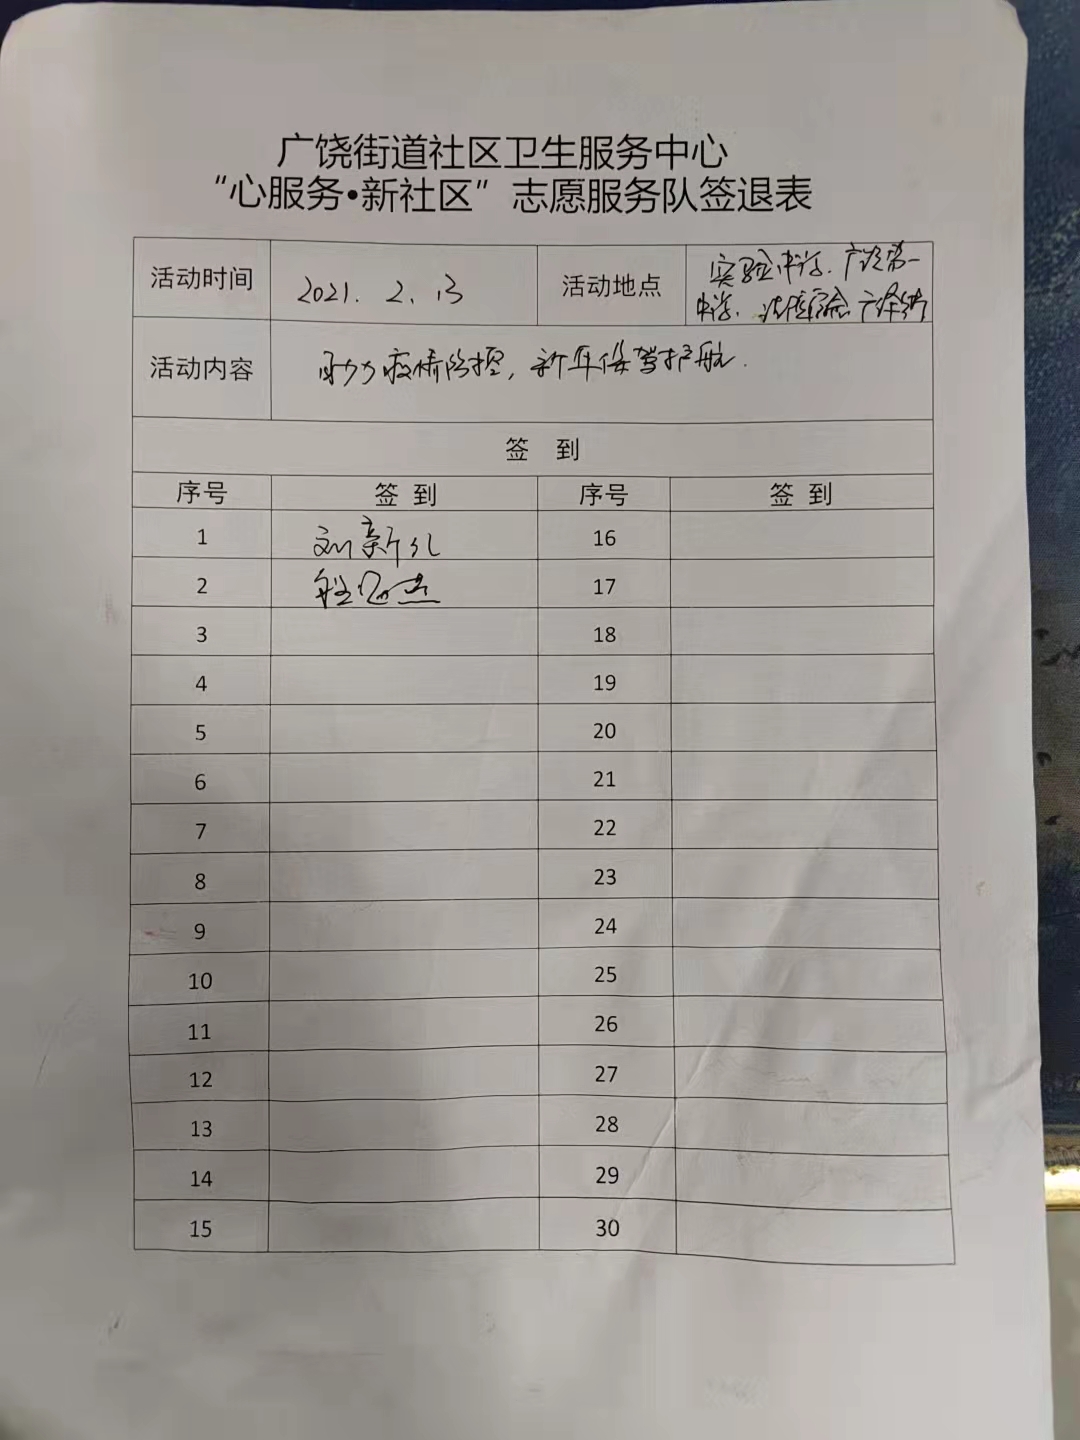 广饶街道社区卫生服务中心
“心服务•新社区”志愿服务队签退表
活动时间 2021. 2. 13 活动地点 实验中学. 广饶第一
中学.
活动内容 助力疫情防控, 新年保驾护航.
签 到
序号 签 到 序号 签 到
1 刘新儿 16
2 17
3 18
4 19
5 20
6 21
7 22
8 23
9 24
10 25
11 26
12 27
13 28
14 29
15 30